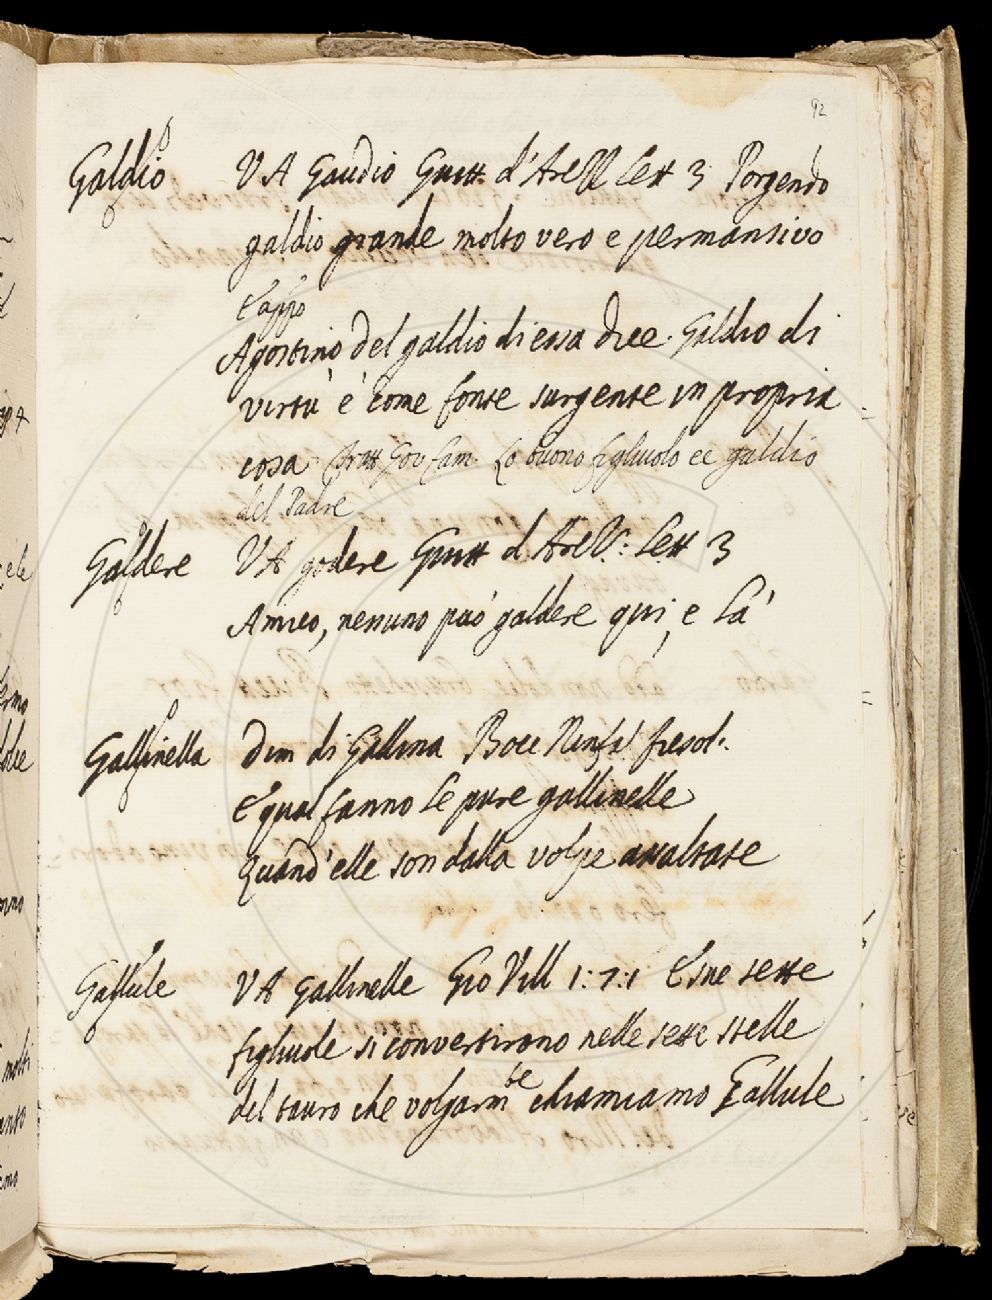 92
Galdio V A Gaudio Guitt. d'Are Lett 3 Porgendo
galdio grande molto vero e permansivo
E appo
Agostino del galdio di essa dice. Galdio di
virtù è come fonte surgente in propria
cosa. Tratt Gov fam. Lo buono figliuolo ee galdio
del Padre
Galdere V A godere Guitt d Are V: Lett 3
Amico, nessuno può galdere qui, e là
Gallinella dim di Gallina Bocc Ninfal fiesol.
E qual fanno le pure gallinelle
Quand'elle son dalla volpe assaltate
Gallule V A Gallinelle Gio Vill 1: 7: 1 E sue sette
figliuole si convertirono nelle sette stelle
del tauro che volgarm te chiamiamo Gallule